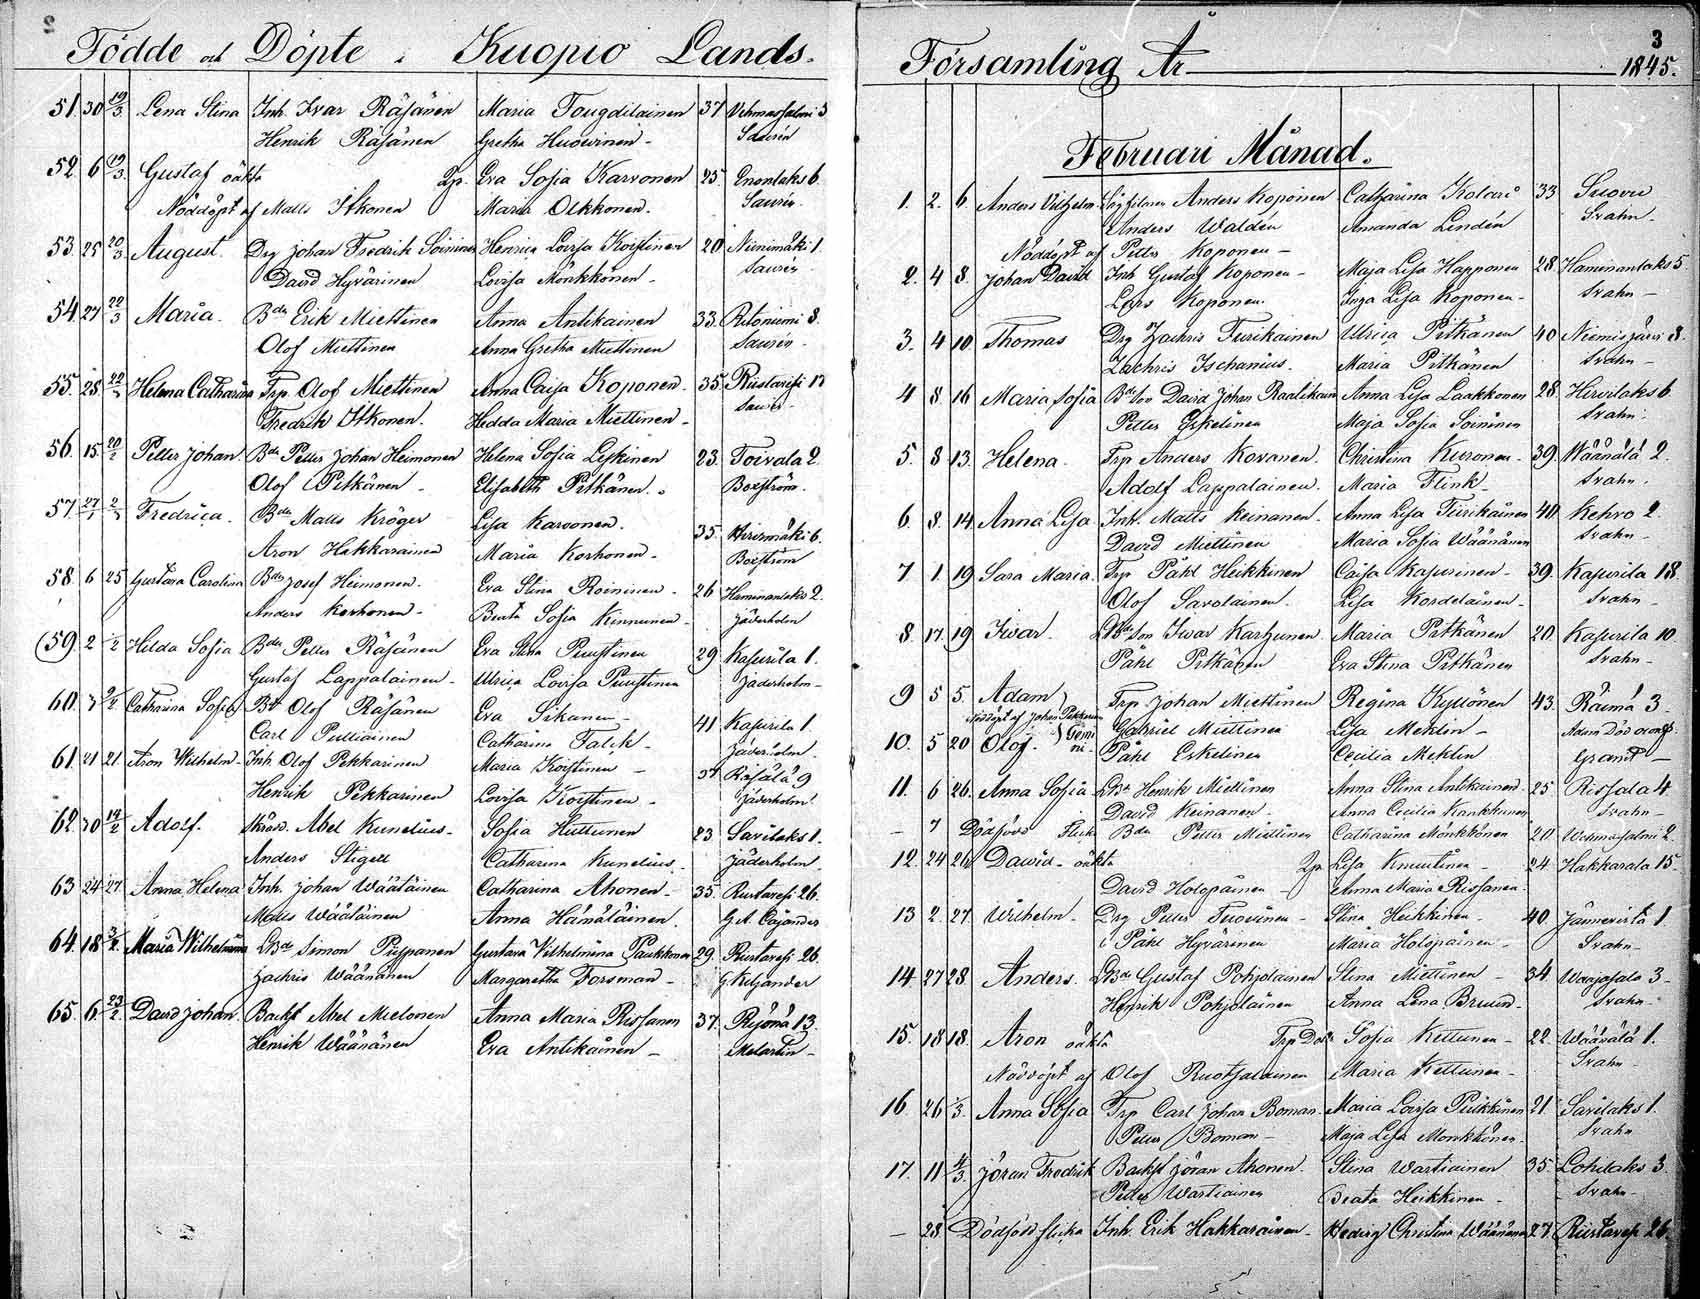 2
Födde och Döpte i Kuopio Lands-
51. 30 19/3 Lena Stina Inh. Ivar Räsänen Maria Tougdilainen 37 Vehmasjalmi 5
Henrik Räsänen Gretha Huovinen - Saurén
52. 6 19/3 Gustaf oäkta Pig. Eva Sofia Karvonen 25 Enonlaks 6.
Nöddöpt af Matts Itkonen Maria Olkkonen. Saurén
53. 25 20/3 August. Drg Johan Fredrik Soininen Henrica Lovisa Koistinen 20 Niinimäki 1.
David Hyvärinen Lovisa Mönkkönen - Saurén
54 27 20/3 Maria. Bdn Erik Miettinen Anna Antikainen 33. Ritoniemi 8.
Olof Miettinen Anna Gretha Miettinen Saurén
55. 28 22/3 Helena Catharina Trp. Olof Miettinen Anna Caisa Koponen 35 Riistavesi 17
Fredrik Itkonen. Hedda Maria Miettinen - Saurén
56. 15 20/2 Petter Johan. Bdn Petter Johan Heimonen Helena Sofia Leskinen 23. Toivala 2
Olof Pitkänen - Elisabeth Pitkänen. Boxström.
57. 27/1 2/3 Fredrica. Bdn Matts Kröger Lisa Karvonen. 35. Hirvimäki 6.
Aron Hakkarainen Maria Korhonen - Boxström
58. 6 25 Gustava Carolina Bdn Josef Heimonen. Eva Stina Roininen - 26 Haminanlaks 2.
Anders Korhonen - Beata Sofia Kinnunen - Jäderholm
59. 2 2/2 Hilda Sofia Bdn Petter Räsänen Eva Stina Puustinen 29 Kasurila 1.
Gustaf Lappalainen - Ulrica Lovisa Puustinen Jäderholm -
60. 7 9/2 Catharina Sofia Bd Olof Räsänen Eva Sikanen - 41 Kasurila 1
Carl Pulliainen Catharina Falck - Jäderholm
61. 21 21. Aron Wilhelm - Inh Olof Pekkarinen Maria Koistinen - 37 Räsälä 9
Henrik Pekkarinen Lovisa Koistinen - Jäderholm.
62. 30 14/2 Adolf. Skräd. Abel Kunelius - Sofia Huttunen 23 Savilaks 1.
Anders Stigell Catharina Kunelius Jäderholm
63 24 27 Anna Helena Inh. Johan Väätäinen Catharina Ahonen - 35. Riistavesi 26.
Matts Väätäinen Anna Hämäläinen. G. A. Cajander
64. 18 3/2 Maria Wilhelmina LBd Simon Puppanen Gustava Vilhelmina Paukkonen 29. Riistavesi 26.
Zachris Väänänen Margaretha Forsman - G. Kiljander
65. 6 23/2 David Johan. Backst Abel Mielonen Anna Maria Rissanen 37. Ryönä 13.
Henrik Väänänen Eva Antikainen - Molarin -
3
Församling År 1845.
Februari Månad.
1. 2. 6 Anders Vilhelm Anders Koponen Catharina Kolari 33 Suovu
Anders Waldén Amanda Lindén Svahn -
Nöddöpt af Petter Koponen -
2. 4 8. Johan David Inh Gustaf Koponen - Maja Lisa Happonen 28 Haminanlaks 5
Lars Koponen. Inga Lisa Koponen - Svahn -
3. 4 10 Thomas Drg Zachris Tiirikainen Ulrica Pitkänen 40 Niemisjärvi 8.
Zachris Tschanius. Maria Pitkänen Svahn -
4 8. 16 Maria Sofia Bdson David Johan Raatikain Anna Lisa Laakkonen 28. Hirvilaks 6
Petter Eskelinen Maja Sofia Soininen Svahn.
5. 8 13. Helena. Trp Anders Kovanen. Christina Kuronen - 39. Wäänälä 2.
Adolf Lappalainen. Maria Flink Svahn.
6. 8. 14. Anna Lisa Inh. Matts Keinanen. Anna Lisa Tiirikainen 40 Kehvo 2
David Miettinen Maria Sofia Wäänänen Svahn -
7 1. 19 Sara Maria. Trp Påhl Heikkinen Caisa Kasurinen - 39. Kasurila 18.
Olof Savolainen. Lisa Kordelainen - Svahn -
8. 17. 19. Iwar. LBdson Iwar Karhunen Maria Pitkänen 20. Kasurila 10.
Påhl Pitkänen Eva Stina Pitkänen Svahn -
9 5 5. Adam Trp Johan Miettinen Regina Kyllönen 43. Räimä 3 -
Nöddöpt af Johan Pekkarinen Gabriel Miettinen Lisa Meklin - Adam Död
10. 5 20 Olof. Gemini Påhl Eskelinen Cecilia Meklin Grand -
11. 6 26. Anna Sofia LBd Henrik Miettinen Anna Stina Antikainen. 25 Rissala 4
David Keinanen. Anna Cecilia Kankkunen Svahn -
- 7 Dödfödd Flicka Bdn Petter Miettinen Catharina Mönkkönen 20 Wehmasjalmi 2.
12. 24 26 David - oäkta Pig Lisa Knuutinen - 24 Hakkarala 15.
David Holopainen - Anna Maria Rissanen.
13 2. 27. Wilhelm - Drg Petter Tuovinen - Stina Heikkinen - 40 Jännevirta 1
Påhl Hyvärinen Maria Holopainen - Svahn -
14. 27 28. Anders. LBd Gustaf Pohjolainen Stina Miettinen - 34. Waajasalo 3
Henrik Pohjolainen Anna Lena Bruun - Svahn -
15. 18 18. Aron oäkta Trp Dotr Sofia Kettunen - 22. Wäänälä 1.
Nöddöpt af Olof Ruotsalainen Maria Kettunen - Svahn -
16. 26 1/3. Anna Sofia Trp Carl Johan Boman. Maria Lovisa Pulkkinen 21. Savilaks 1.
Petter Boman - Maja Lisa Monkkönen - Svahn
17. 11 4/3. Jöran Fredrik Backst Jöran Ahonen. Stina Wartiainen 35. Lohilaks 3.
Petter Wartiainen Beata Heikkinen - Svahn -
- 28 Dödfödd flicka Inh. Erik Hakkarainen - Hedvig Christina Väänänen 27. Riistavesi 26.